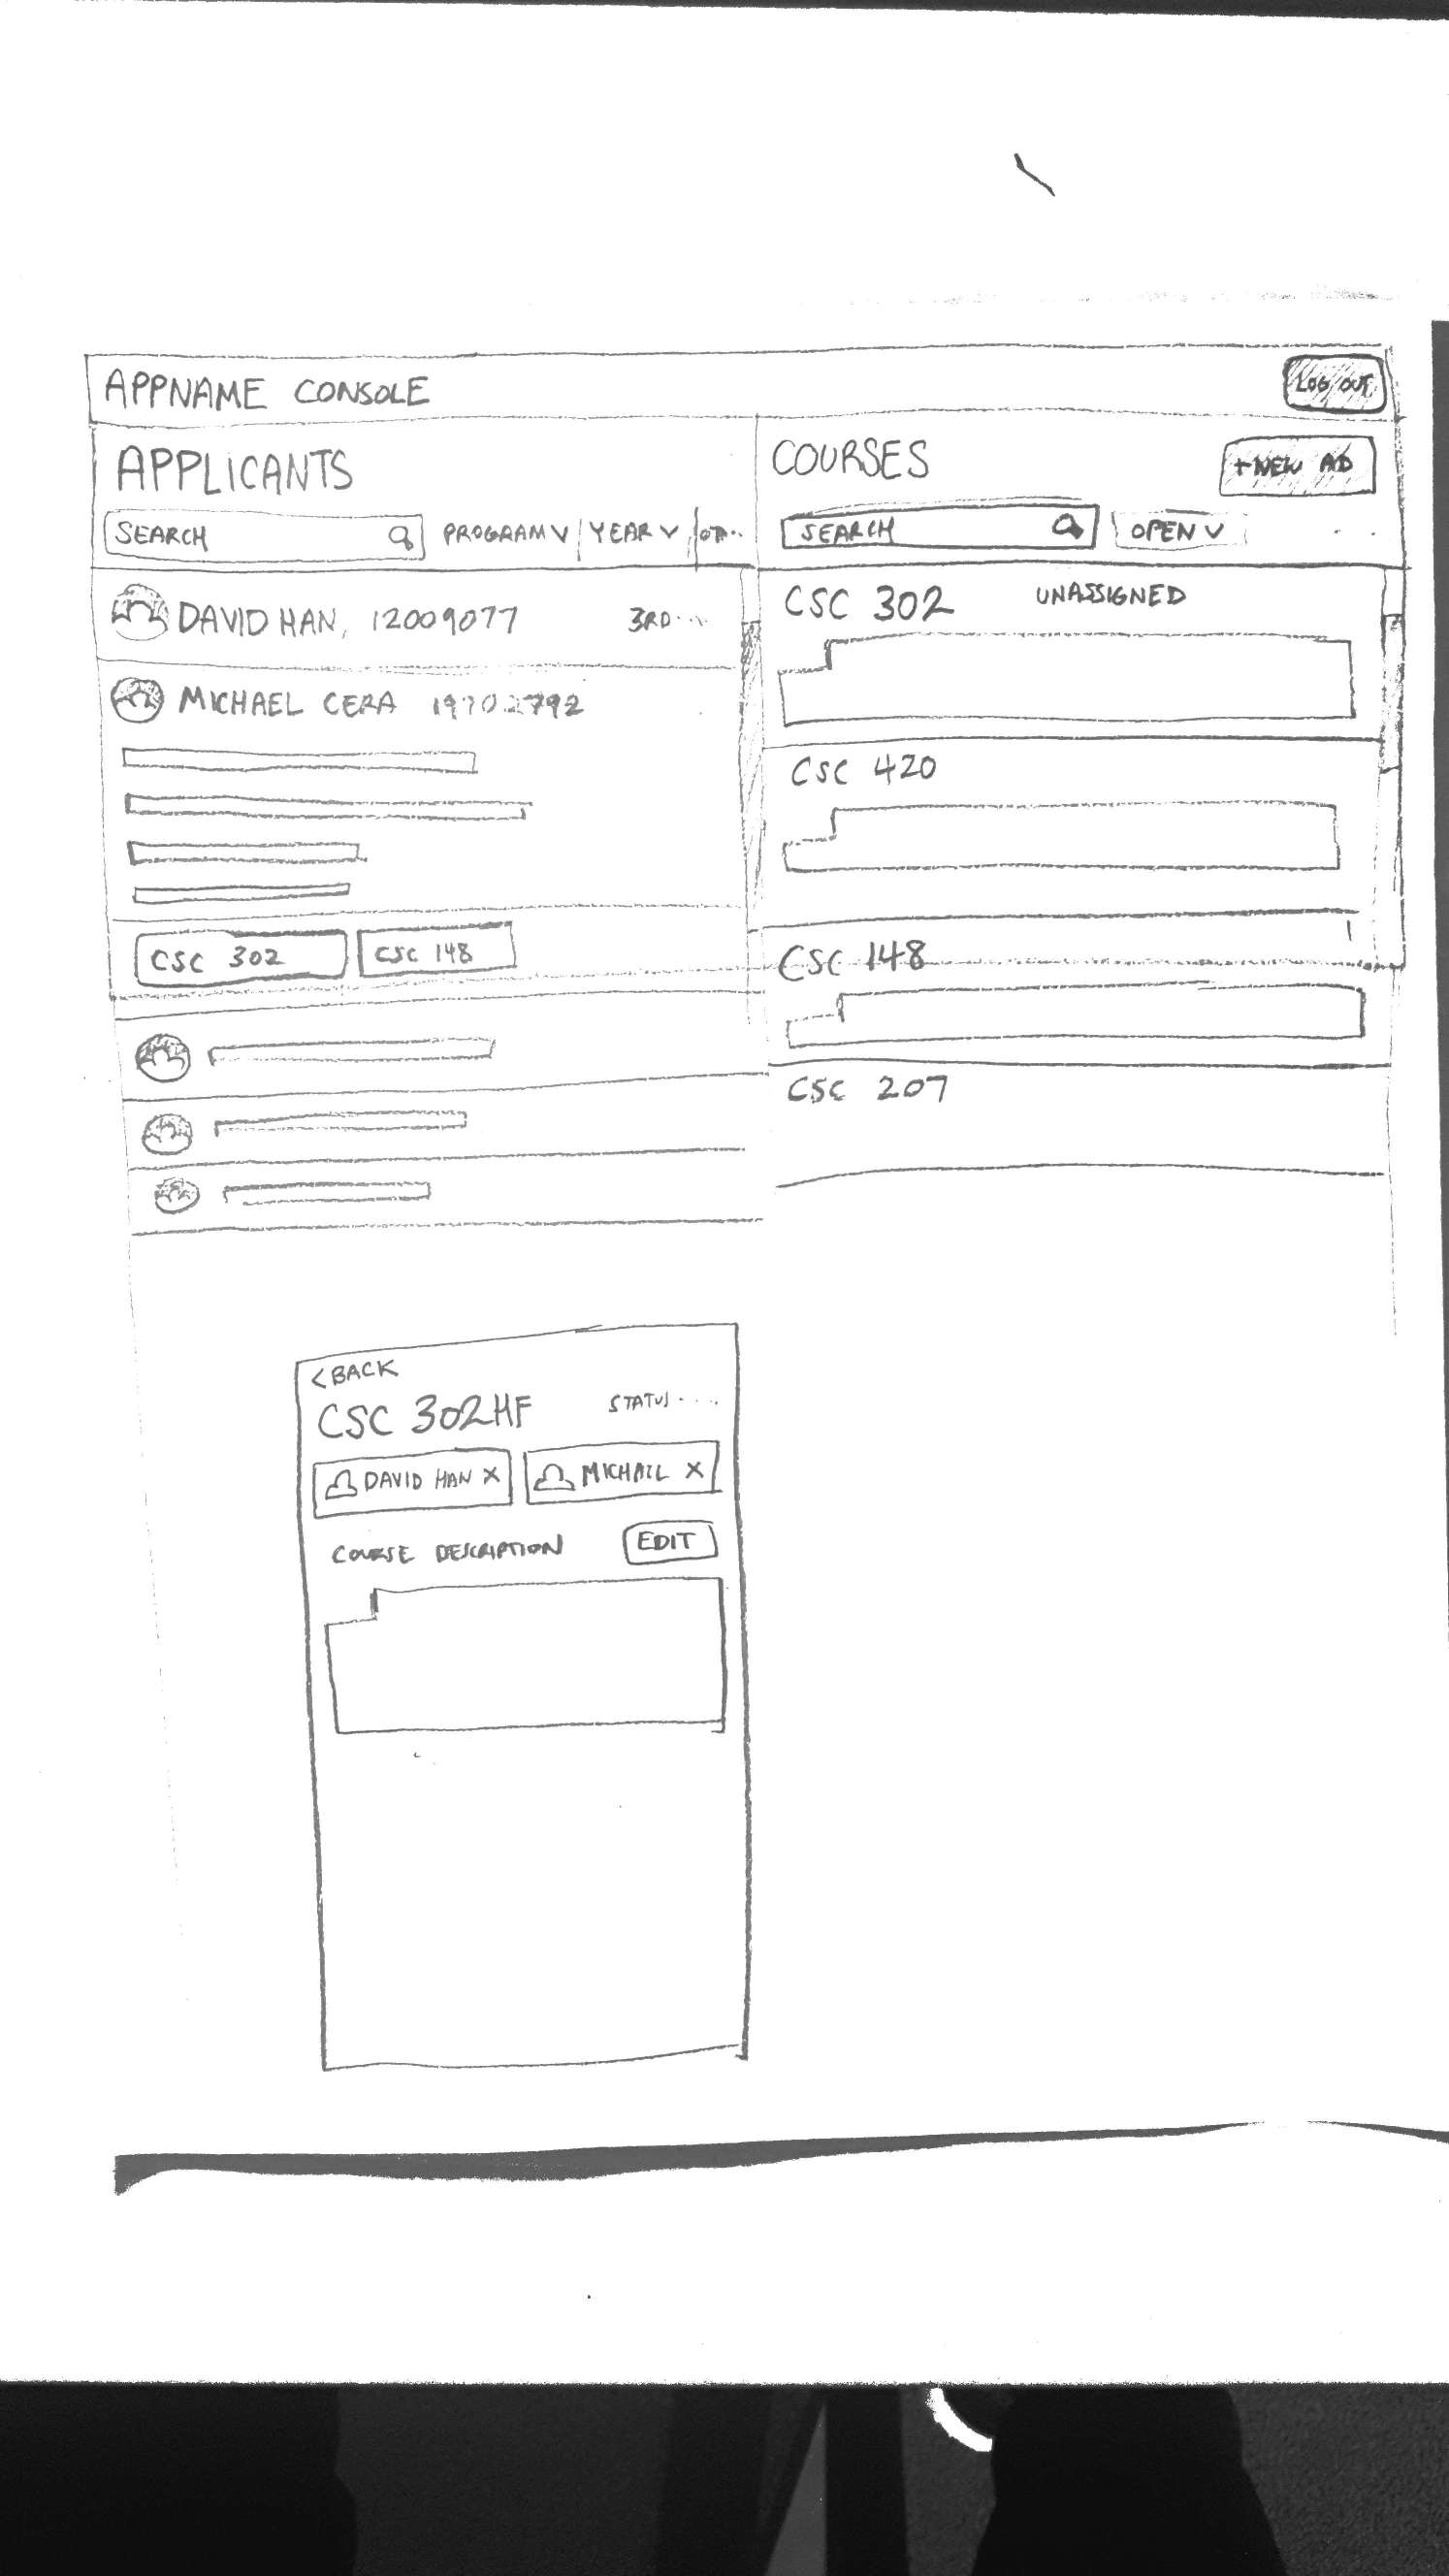 APPNAME CONSOLE
LOG OUT
APPLICANTS
SEARCH
PROGRAM V
YEAR V
DAVID HAN, 12009077
3RD...
MICHAEL CERA 19702792
CSC 302
CSC 148
COURSES
+NEW AD
SEARCH
OPEN V
CSC 302
UNASSIGNED
CSC 420
CSC 148
CSC 207
<BACK
CSC 302HF
STATUS....
DAVID HAN X
MICHAEL X
COURSE DESCRIPTION
EDIT